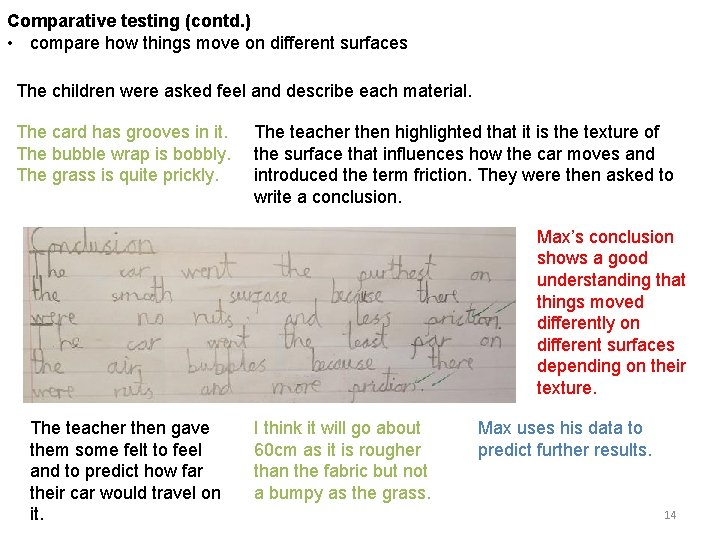 Comparative testing (contd.)
• compare how things move on different surfaces
The children were asked feel and describe each material.
The card has grooves in it.
The bubble wrap is bobbly.
The grass is quite prickly.
The teacher then highlighted that it is the texture of
the surface that influences how the car moves and
introduced the term friction. They were then asked to
write a conclusion.
Conclusion
The car went the furthest on
the smooth surfase because there
were no ruts. and less friction.
The car went the least far on
the air bubbles because there
were ruts and more friction.
Max's conclusion
shows a good
understanding that
things moved
differently on
different surfaces
depending on their
texture.
The teacher then gave
them some felt to feel
and to predict how far
their car would travel on
it.
I think it will go about
60cm as it is rougher
than the fabric but not
a bumpy as the grass.
Max uses his data to
predict further results.
14